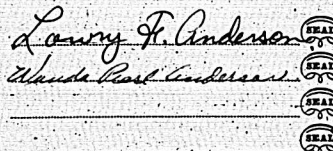 Lowry F. Anderson SEAL
Wanda Pearl Anderson SEAL
SEAL
SEAL